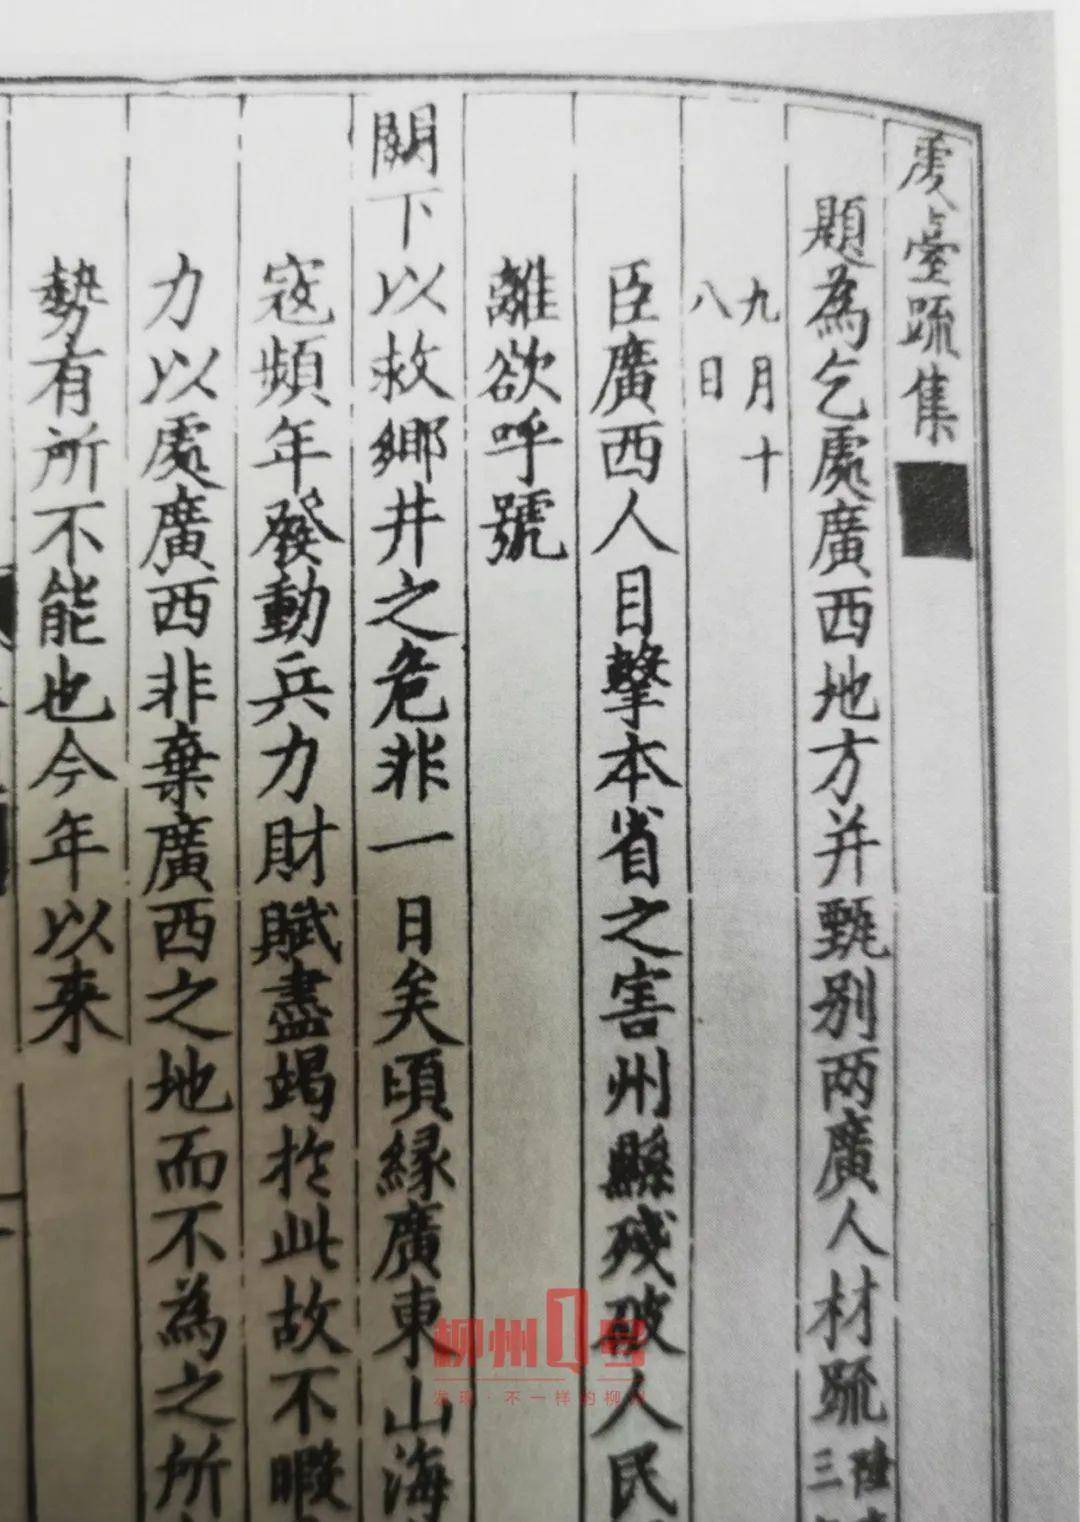 虔臺疏集
題為乞處廣西地方并甄别两廣人材疏
隆
三
九月十
八日
臣廣西人目擊本省之害州縣殘破人民
離欲呼號
闕下以救鄉井之危非一日矣頃緣廣東山海
寇頻年發動兵力財賦盡竭於此故不暇
力以處廣西非棄廣西之地而不為之所
勢有所不能也今年以来
柳州1号
发现·不一样的柳州